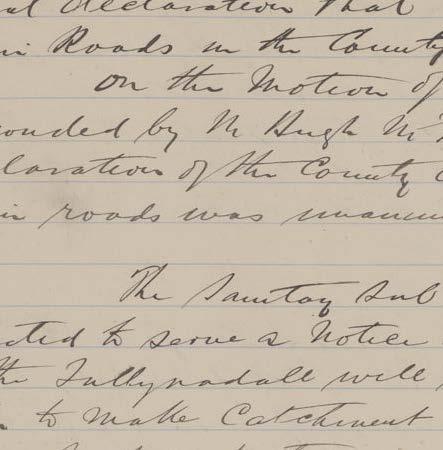 al declaration that
in Roads in the County
On the Motion of
conded by Mr Hugh Mc
laration of the County C
in roads was unanim
The Sanitary Sub
cted to serve a Notice
the Tullynadall well
to make Catchment